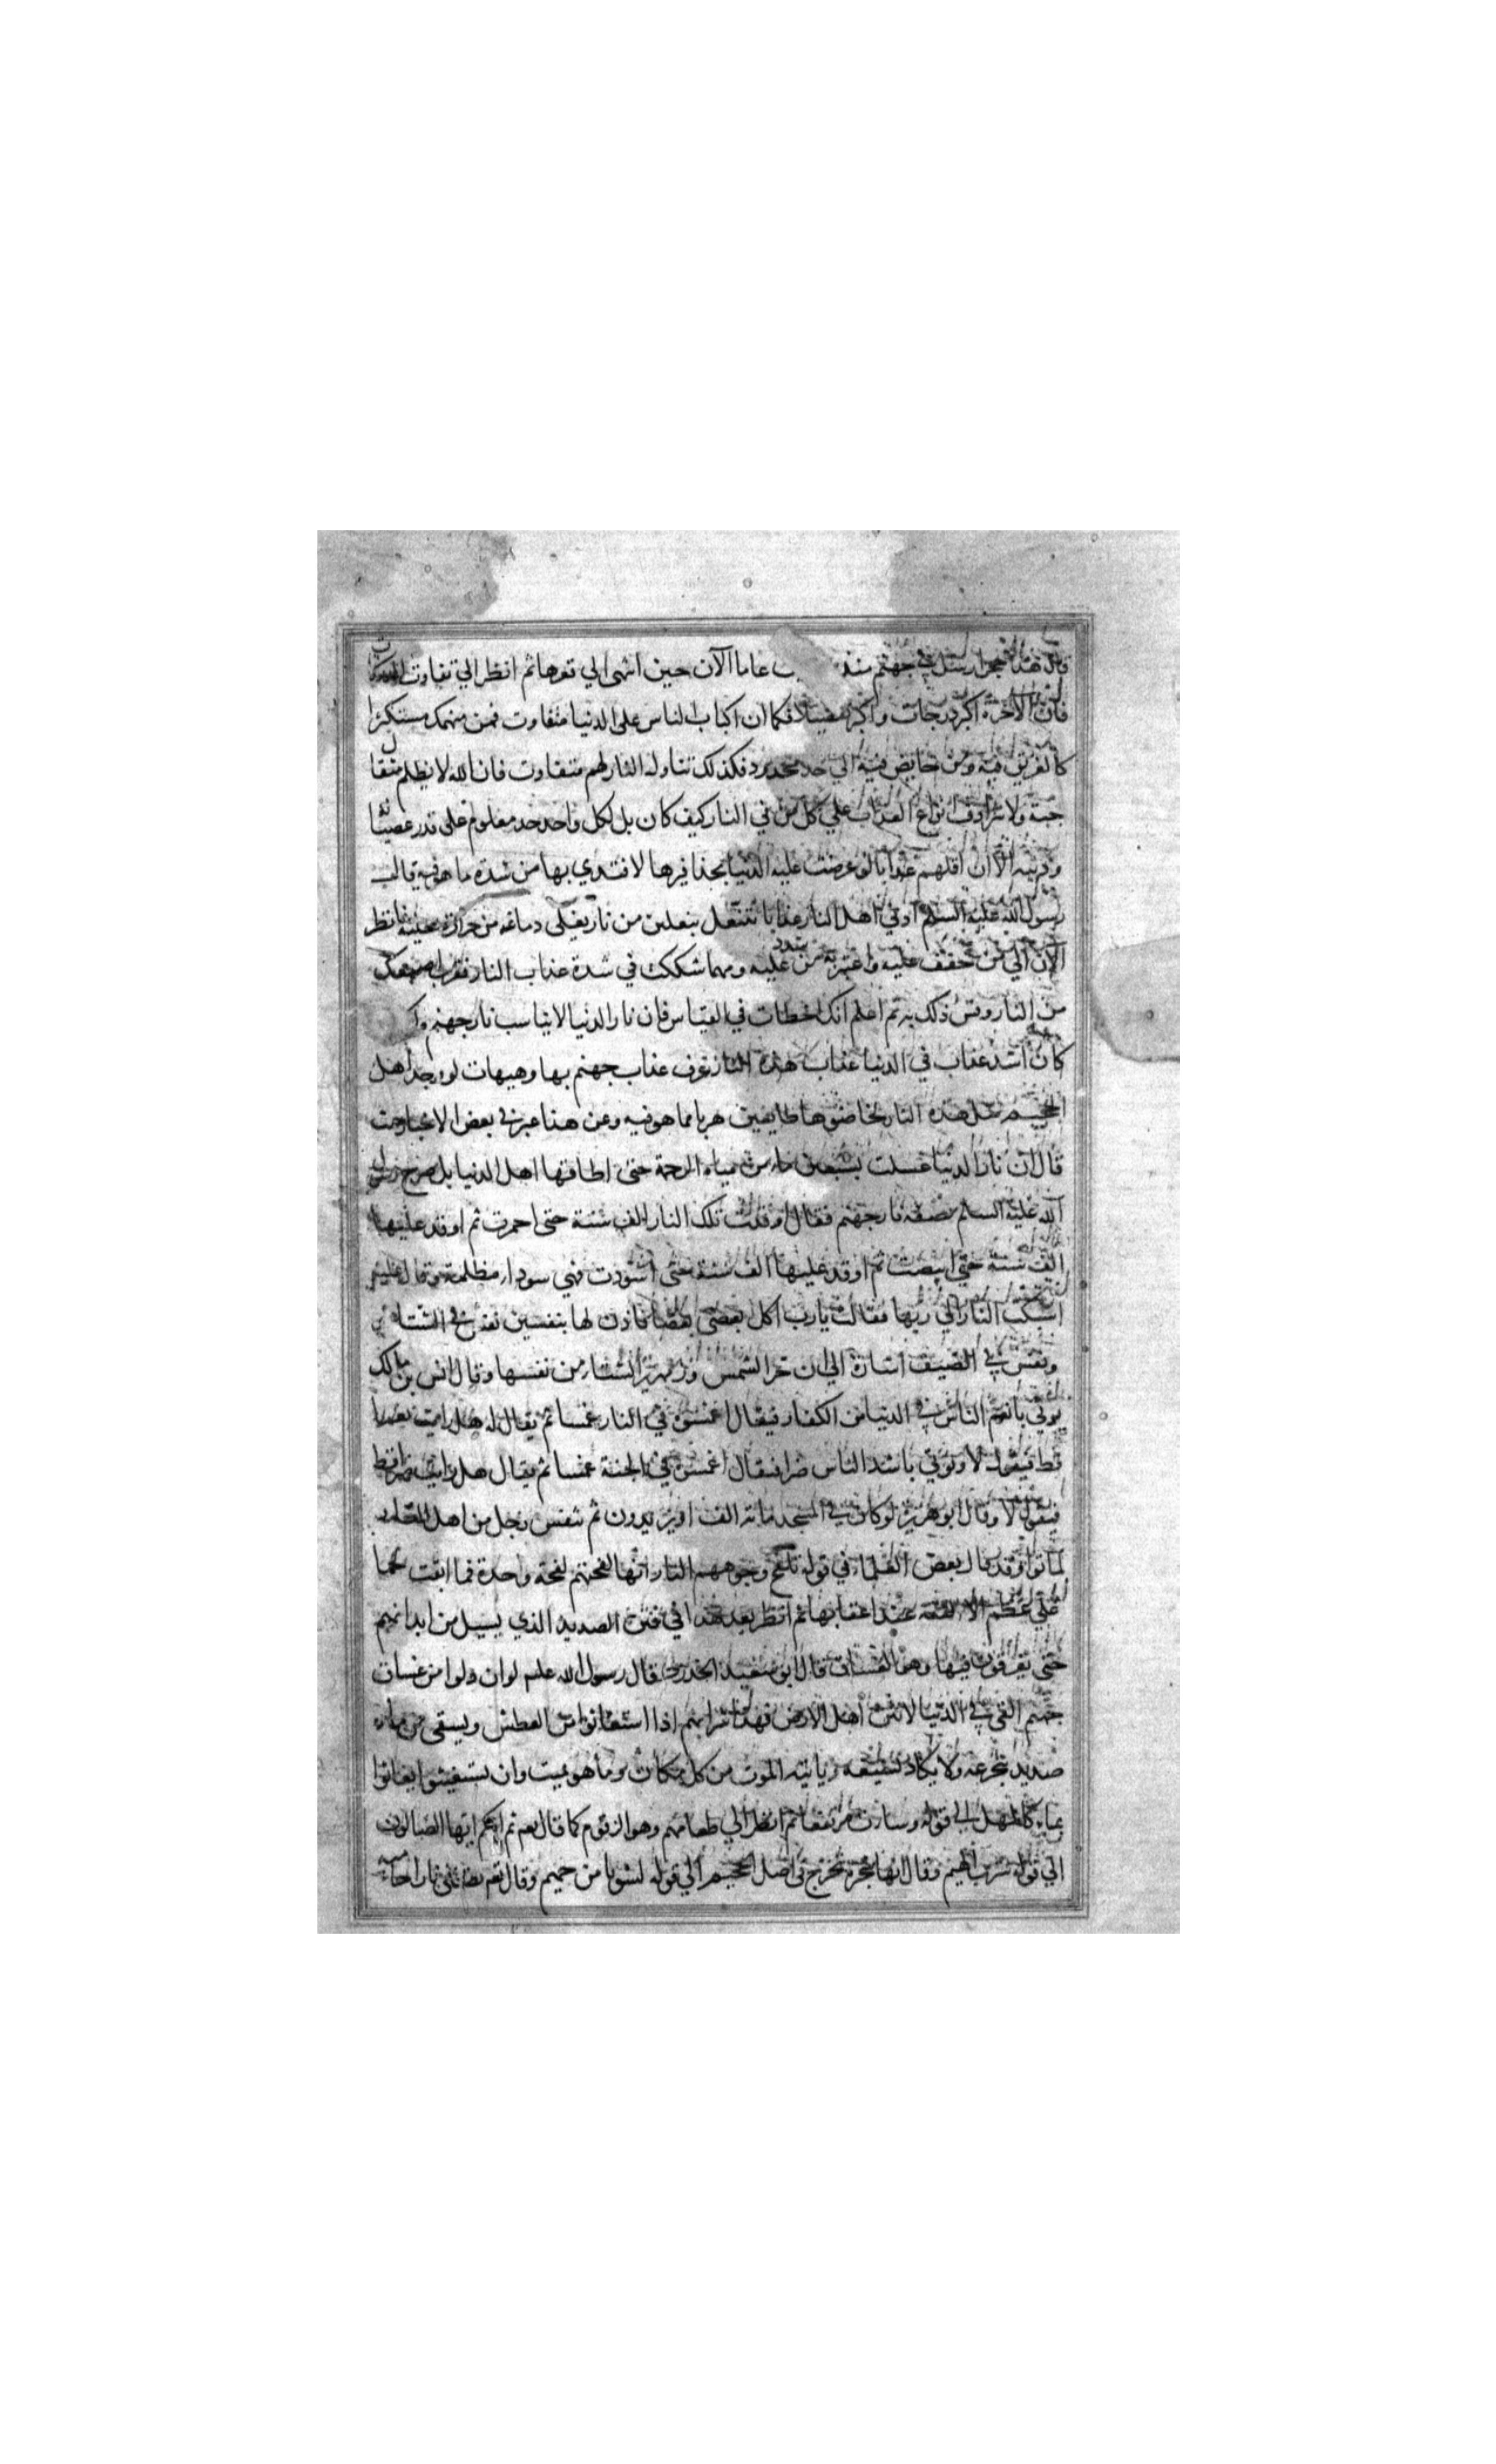 قال هذا حجر ارسل في جهنم منذ عاما الآن حين انتهى الي قعرها ثم انظر الي تفاوت
فان الآخرة اكبر درجات واكبر تفضيلا فكما ان اكباب الناس على الدنيا متفاوت فمن منهمك مستكثر
كالغريق فيه ومن خايض فيه الي حد محدود فكذلك تناول النار لهم متفاوت فان الله لا يظلم مثقال
حبة ولا تترادف انواع العذاب علي كل من في النار كيف كان بل لكل واحد حد معلوم على قدر
وذنبه الا ان اقلهم عذابا لو عرضت عليه الدنيا بحذافيرها لافتدي بها من شدة ما هو فيه قال
رسول الله عليه السلم ادني اهل النار عذابا ينتعل بنعلين من نار يغلى دماغه من حرارة نعليه فانظر
الآن الي من خفف عليه واعتبر به من شدد عليه ومهما شككت في شدة عذاب النار فقرب اصبعك
من النار وقس ذلك به ثم اعلم انك اخطات في القياس فان نار الدنيا لا يناسب نار جهنم
كان اشد عذاب في الدنيا عذاب هذه النار عرف عذاب جهنم بها وهيهات لو وجد اهل
الجحيم مثل هذه النار لخاضوها طايعين هربا مما هو فيه وعن هذا عبر في بعض الاخبار حيث
قال ان نار الدنيا غسلت بسبعين ماء من مياه الرحمة حتى اطاقها اهل الدنيا بل صرح رسول
الله عليه السلم بصفة نار جهنم فقال اوقدت تلك النار الف سنة حتى احمرت ثم اوقد عليها
الف سنة حتى ابيضت ثم اوقد عليها الف سنة حتى اسودت فهي سوداء مظلمة وقال عليه
اشتكت النار الي ربها فقالت يارب اكل بعضي بعضا فاذن لها بنفسين نفس في الشتاء
ونفس في الصيف اشارة الي ان حر الشمس وزمهرير الشتاء من نفسها وقال انس بن مالك
يوتي بانعم الناس في الدنيا من الكفار فيقال اغمسوه في النار غمسا ثم يقال له هل رايت نعيما
قط فيقول لا ويوتي باشد الناس ضرا فيقال اغمسوه في الجنة غمسا ثم يقال هل رايت ضرا قط
فيقول لا وقال ابو هريرة لو كان في المسجد مائة الف او يزيدون ثم تنفس رجل من اهل النار
لماتوا وقد قال بعض العلماء في قوله تلفح وجوههم النار انها لفحتهم لفحة واحدة فما ابقت لحما
على عظم الا القته عند اعقابها ثم انظر بعد هذا في نتن الصديد الذي يسيل من ابدانهم
حتى يغرقون فيها وهو الغساق قال ابو سعيد الخدري قال رسول الله عليه لو ان دلوا من غساق
جهنم القى في الدنيا لانتن اهل الارض فهذا شرابهم اذا استغاثوا من العطش ويسقى من ماء
صديد يتجرعه ولا يكاد يسيغه وياتيه الموت من كل مكان وما هو بميت وان يستغيثوا يغاثوا
بماء كالمهل الي قوله وساءت مرتفقا ثم انظر الي طعامهم وهو الزقوم كما قال تعم ثم انكم ايها الضالون
الي قوله شرب الهيم وقال انها شجرة تخرج في اصل الجحيم الي قوله لشوبا من حميم وقال تعم تصلى نارا حامية